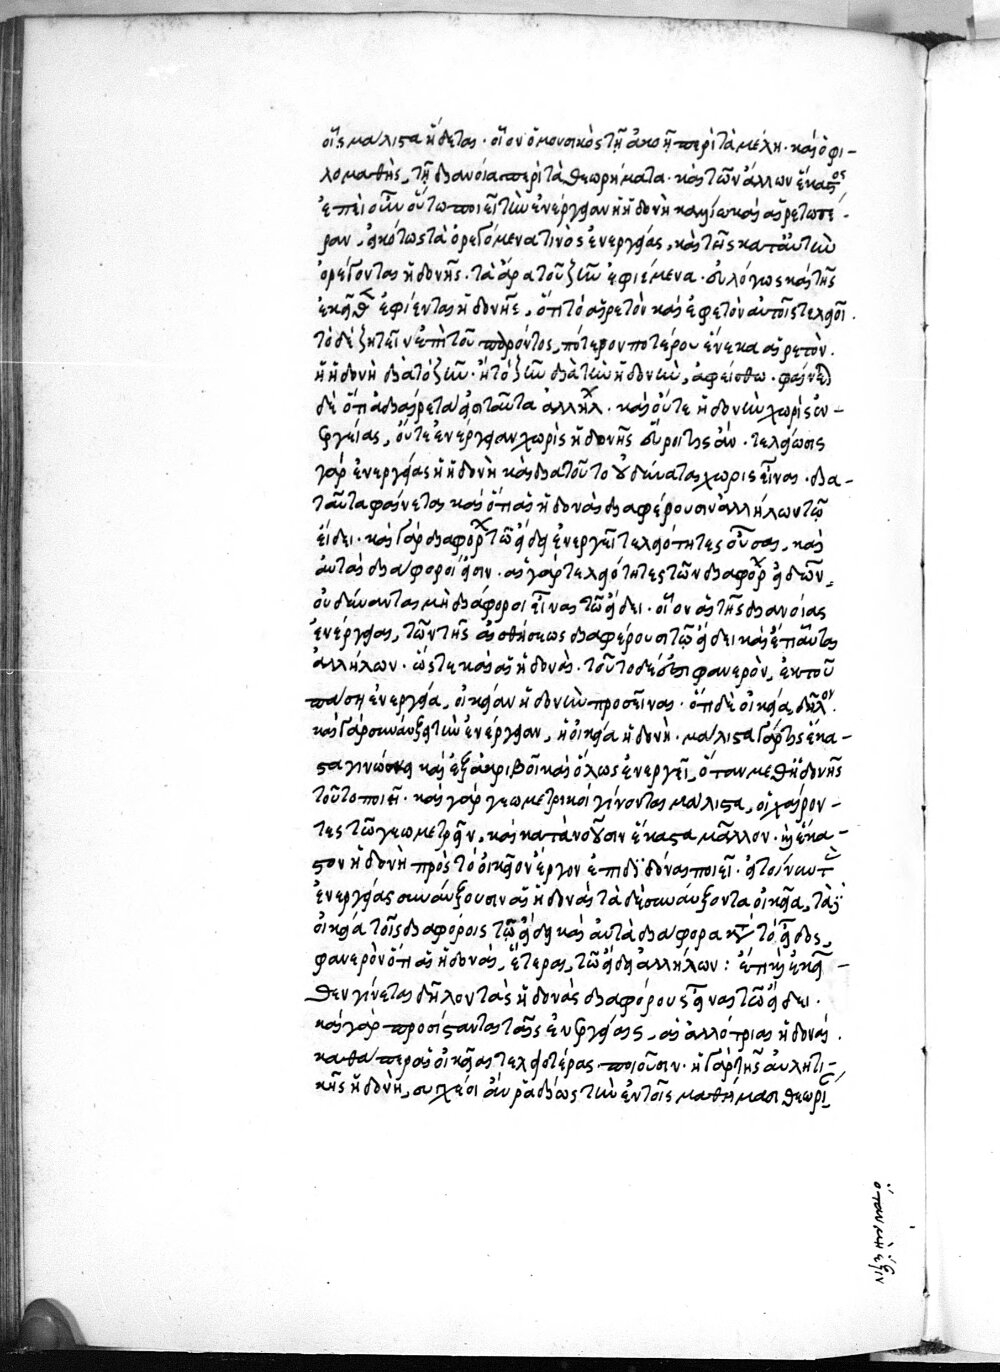 οἷς μάλιστα ἥδεται· οἷον ὁ μουσικὸς τῇ ἀκοῇ περὶ τὰ μέλη· καὶ ὁ φι-
λομαθὴς, τῇ διανοίᾳ περὶ τὰ θεωρήματα· καὶ τῶν ἄλλων ἕκαστος
ἐπεὶ οὖν οὕτω ποιεῖ τὴν ἐνέργειαν ἡ ἡδονὴ καὶ αἱρετωτέ-
ραν, εἰκότως τὰ ὀρεγόμενά τινος ἐνεργείας, καὶ τῆς κατ' αὐτὴν
ὀρέγονται ἡδονῆς· τὰ ἄρα τοῦ ζῆν ἐφιέμενα· εὐλόγως καὶ τῆς
ἐκεῖθεν ἐφίενται ἡδονῆς, ὅτι τὸ αἱρετὸν καὶ ἐφετὸν αὐτοῖς τελειοῖ.
τὸ δὲ ζητεῖν ἐπὶ τοῦ παρόντος, πότερον ποτέρου ἕνεκα αἱρετὸν.
ἡ ἡδονὴ διὰ τὸ ζῆν· ἢ τὸ ζῆν διὰ τὴν ἡδονὴν, ἀφείσθω· φαίνεται
δὲ ὅτι ἀδιαίρετά ἐστι ταῦτα ἀλλήλων· καὶ οὔτε ἡδονὴν χωρὶς ἐν-
εργείας, οὔτε ἐνέργειαν χωρὶς ἡδονῆς εὕροι τις ἄν· τελείωσις
γὰρ ἐνεργείας ἡ ἡδονὴ καὶ διὰ τοῦτο οὐ δύναται χωρὶς εἶναι· διὰ
ταῦτα φαίνεται καὶ ὅτι αἱ ἡδοναὶ διαφέρουσιν ἀλλήλων τῷ
εἴδει· καὶ γὰρ διαφόρων τῷ εἴδει ἐνεργειῶν τελειότητες οὖσαι, καὶ
αὐταὶ διάφοροί εἰσιν· αἱ γὰρ τελειότητες τῶν διαφόρων εἰδῶν,
οὐ δύνανται μὴ διάφοροι εἶναι τῷ εἴδει· οἷον αἱ τῆς διανοίας
ἐνέργειαι, τῶν τῆς αἰσθήσεως διαφέρουσι τῷ εἴδει καὶ ἔτι αὗται
ἀλλήλων· ὥστε καὶ αἱ ἡδοναὶ· τοῦτο δέ ἐστι φανερὸν, ἐκ τοῦ
πάσῃ ἐνεργείᾳ, οἰκείαν ἡδονὴν προσεῖναι· ὅτι δὲ οἰκεία, δῆλον.
καὶ γὰρ συναύξει τὴν ἐνέργειαν, ἡ οἰκεία ἡδονὴ· μάλιστα γάρ τις ἕκα-
στα γινώσκει καὶ ἐξακριβοῖ καὶ ὅλως ἐνεργεῖ, ὅταν μεθ' ἡδονῆς
τοῦτο ποιεῖ· καὶ γὰρ γεωμετρικοὶ γίνονται μάλιστα, οἱ χαίρον-
τες τῷ γεωμετρεῖν, καὶ κατανοοῦσιν ἕκαστα μᾶλλον· καὶ ἕκα-
στον ἡδονὴ πρὸς τὸ οἰκεῖον ἔργον ἐπιδιδόναι ποιεῖ· εἰ τοίνυν τὰς
ἐνεργείας συναύξουσιν αἱ ἡδοναὶ τὰ δὲ συναύξοντα οἰκεῖα, τὰ δὲ
οἰκεῖα τοῖς διαφόροις τῷ εἴδει καὶ αὐτὰ διάφορα κατὰ τὸ εἶδος,
φανερὸν ὅτι αἱ ἡδοναὶ, ἕτεραι τῷ εἴδει ἀλλήλων: ἔτι καὶ ἐκεῖ-
θεν γίνεται δῆλον τὰς ἡδονὰς διαφόρους εἶναι τῷ εἴδει.
καὶ γὰρ προσίστανται ταῖς ἐνεργείαις, αἱ ἀλλότριαι ἡδοναί.
καθάπερ αἱ οἰκεῖαι τελειοτέρας ποιοῦσιν· ἡ γὰρ τῆς αὐλητι-
κῆς ἡδονὴ, συγχέει ἂν ῥαδίως τὴν ἐν τοῖς μαθήμασι θεωρί